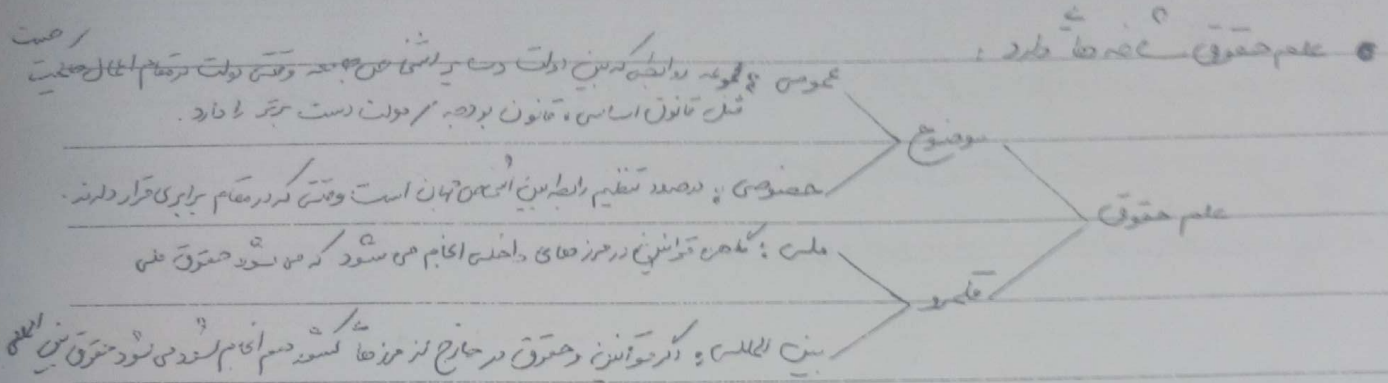 علم حقوق شاخه هایی دارد :
عمومی : مجموعه روابطی که بین دولت و سایر اشخاص جامعه وقتی دولت در مقام اعمال حاکمیت
مثل قانون اساسی ، قانون بودجه / دولت دست برتر را دارد .
موضوع
خصوصی : درصدد تنظیم رابطه بین اشخاص است وقتی که در مقام برابری قرار دارند .
علم حقوق
ملی : گاهی قوانین در مرزهای داخلی انجام می شود که می شود حقوق ملی
قلمرو
بین المللی : اگر قوانین و حقوق در خارج از مرزها کشور هم انجام شود می شود حقوق بین المللی